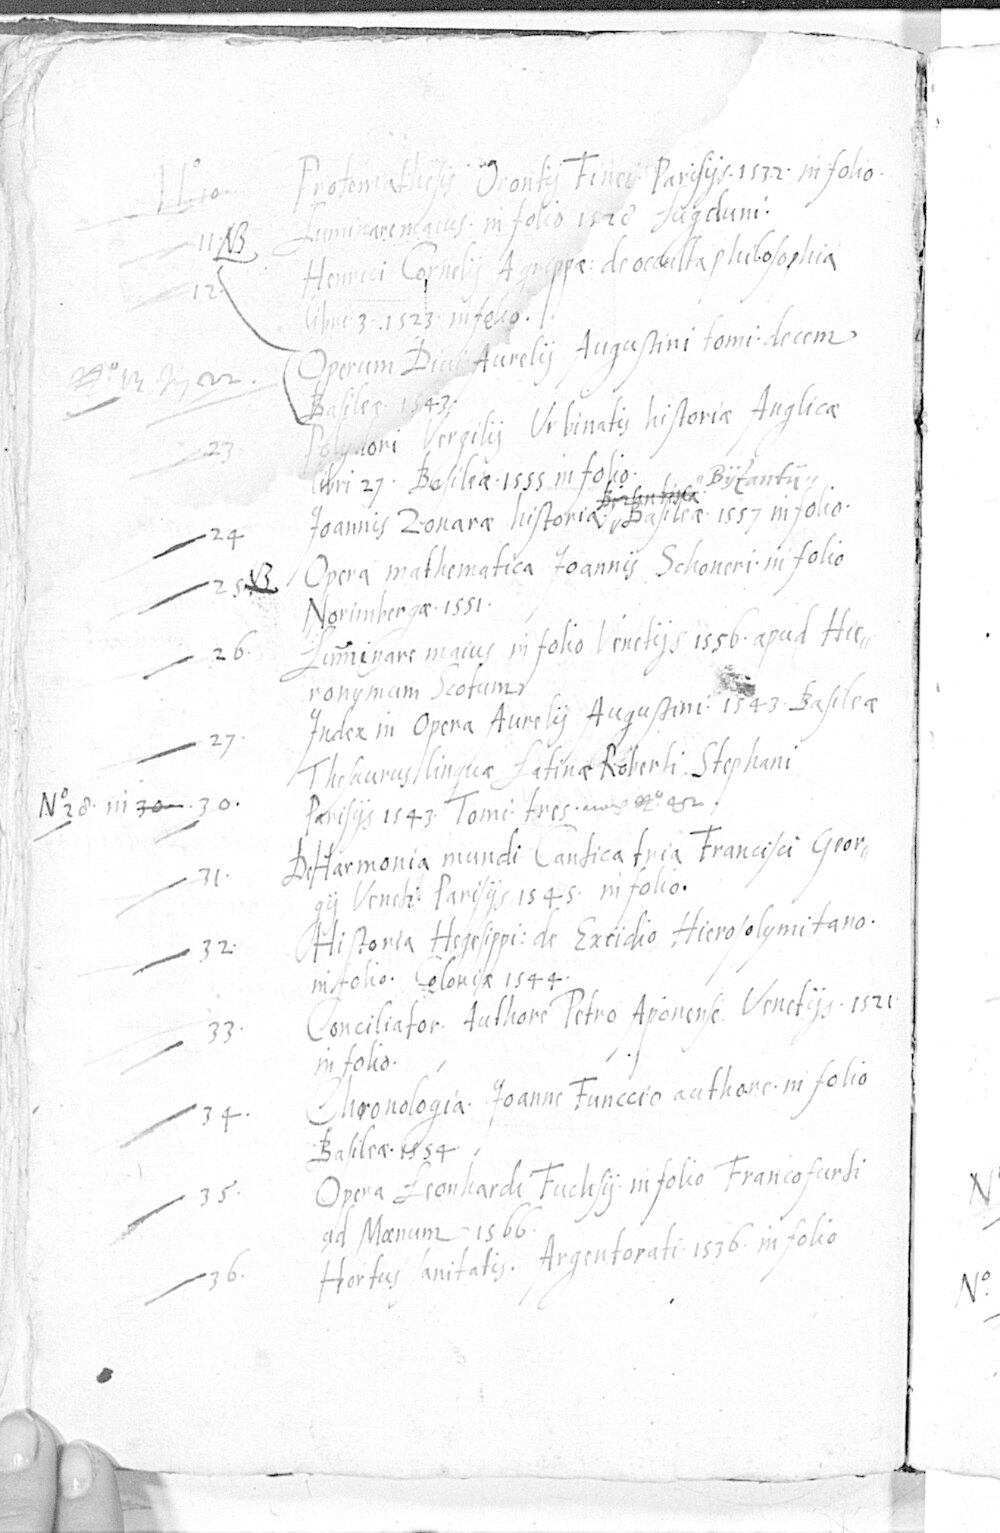 No 10 Protomathesis Orontij Finei Parisijs. 1532. in folio.
11 NB Luminare maius. in folio 1528 Lugduni.
12. Henrici Cornelij Agrippæ: de occulta philosophia
libri 3. 1523. in folio.
No. 13 22. Operum Diui Aurelij Augustini tomi decem
Basileæ. 1543.
23. Polydori Vergilij Urbinatis historiæ Anglicæ
libri 27. Basileæ. 1555 in folio.
Bÿzantij
24 Joannis Zonaræ historia Basileæ. 1557 in folio.
25. NB Opera mathematica Joannis Schoneri in folio
Norimbergæ. 1551.
26. Luminare maius in folio Venetijs 1556. apud Hie„
ronymum Scotum
27. Index in Opera Aurelij Augustini. 1543. Basileæ
Thesaurus linguæ Latinæ Roberti Stephani
No 28. in 30. 30. Parisijs 1543. Tomi tres.
31. De Harmonia mundi Cantica tria Francisci Geor„
gij Veneti. Parisijs 1545. in folio.
32. Historia Hegesippi: de Excidio Hierosolymitano.
in folio. Coloniæ 1544.
33. Conciliator. Authore Petro Aponensi Venetijs. 1521.
in folio.
34. Chronologia. Joanne Funccio authore. in folio
Basileæ. 1554
35. Opera Leonhardi Fuchsij. in folio Francofurti
ad Mœnum 1566.
36. Hortus sanitatis. Argentorati. 1536. in folio
No
No.